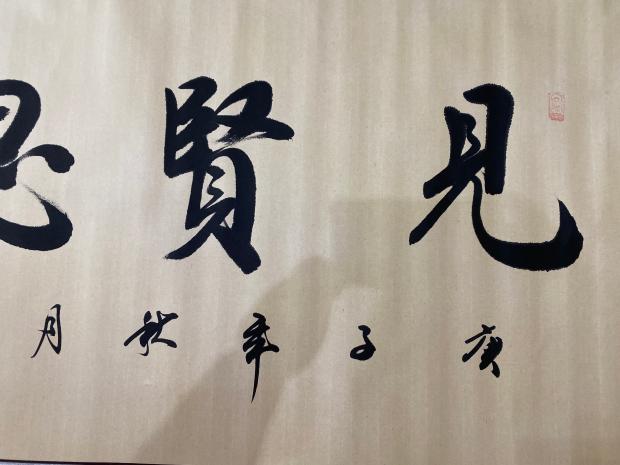 見賢思
庚子年秋月